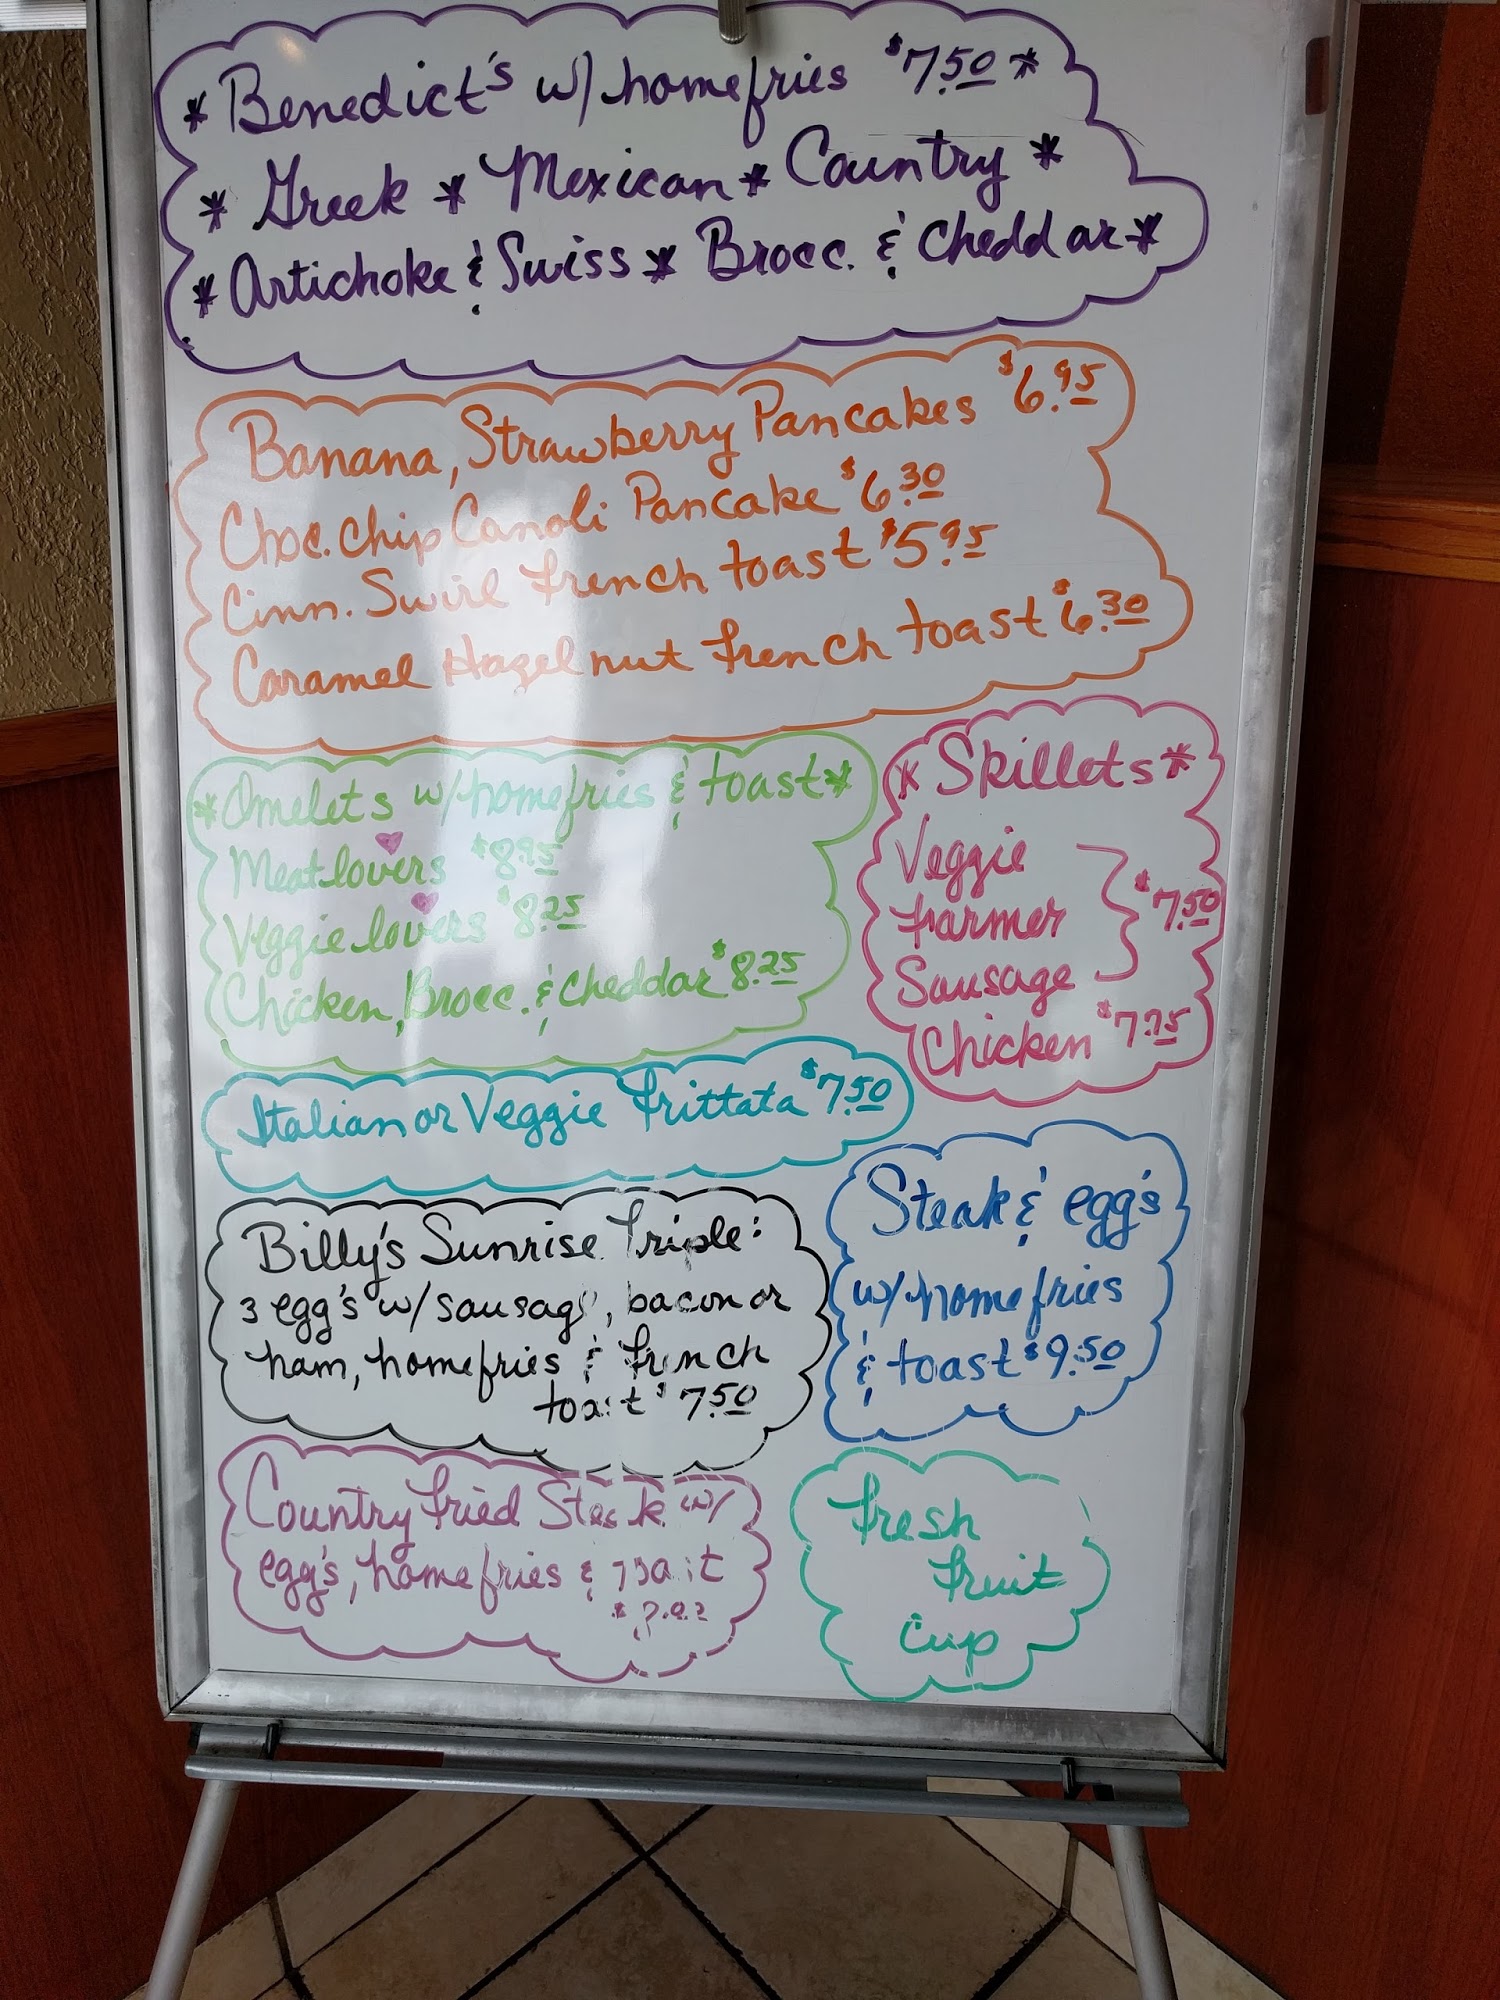 * Benedict's w/ homefries $7.50 *
* Greek * Mexican * Country *
* Artichoke & Swiss * Brocc. & Cheddar *
Banana, Strawberry Pancakes $6.95
Choc. Chip Canoli Pancake $6.30
Cinn. Swirl French toast $5.95
Caramel Hazelnut French toast $6.30
*Omelets w/ homefries & toast*
Meat lovers $8.95
Veggie lovers $8.25
Chicken, Brocc. & Cheddar $8.25
* Skillets *
Veggie
Farmer
$7.50
Sausage
Chicken $7.75
Italian or Veggie Frittata $7.50
Billy's Sunrise Triple:
3 egg's w/ sausage, bacon or
ham, homefries & French
toast $7.50
Steak & egg's
w/ homefries
& toast $9.50
Country Fried Steak w/
egg's, homefries & toast
Fresh
Fruit
Cup